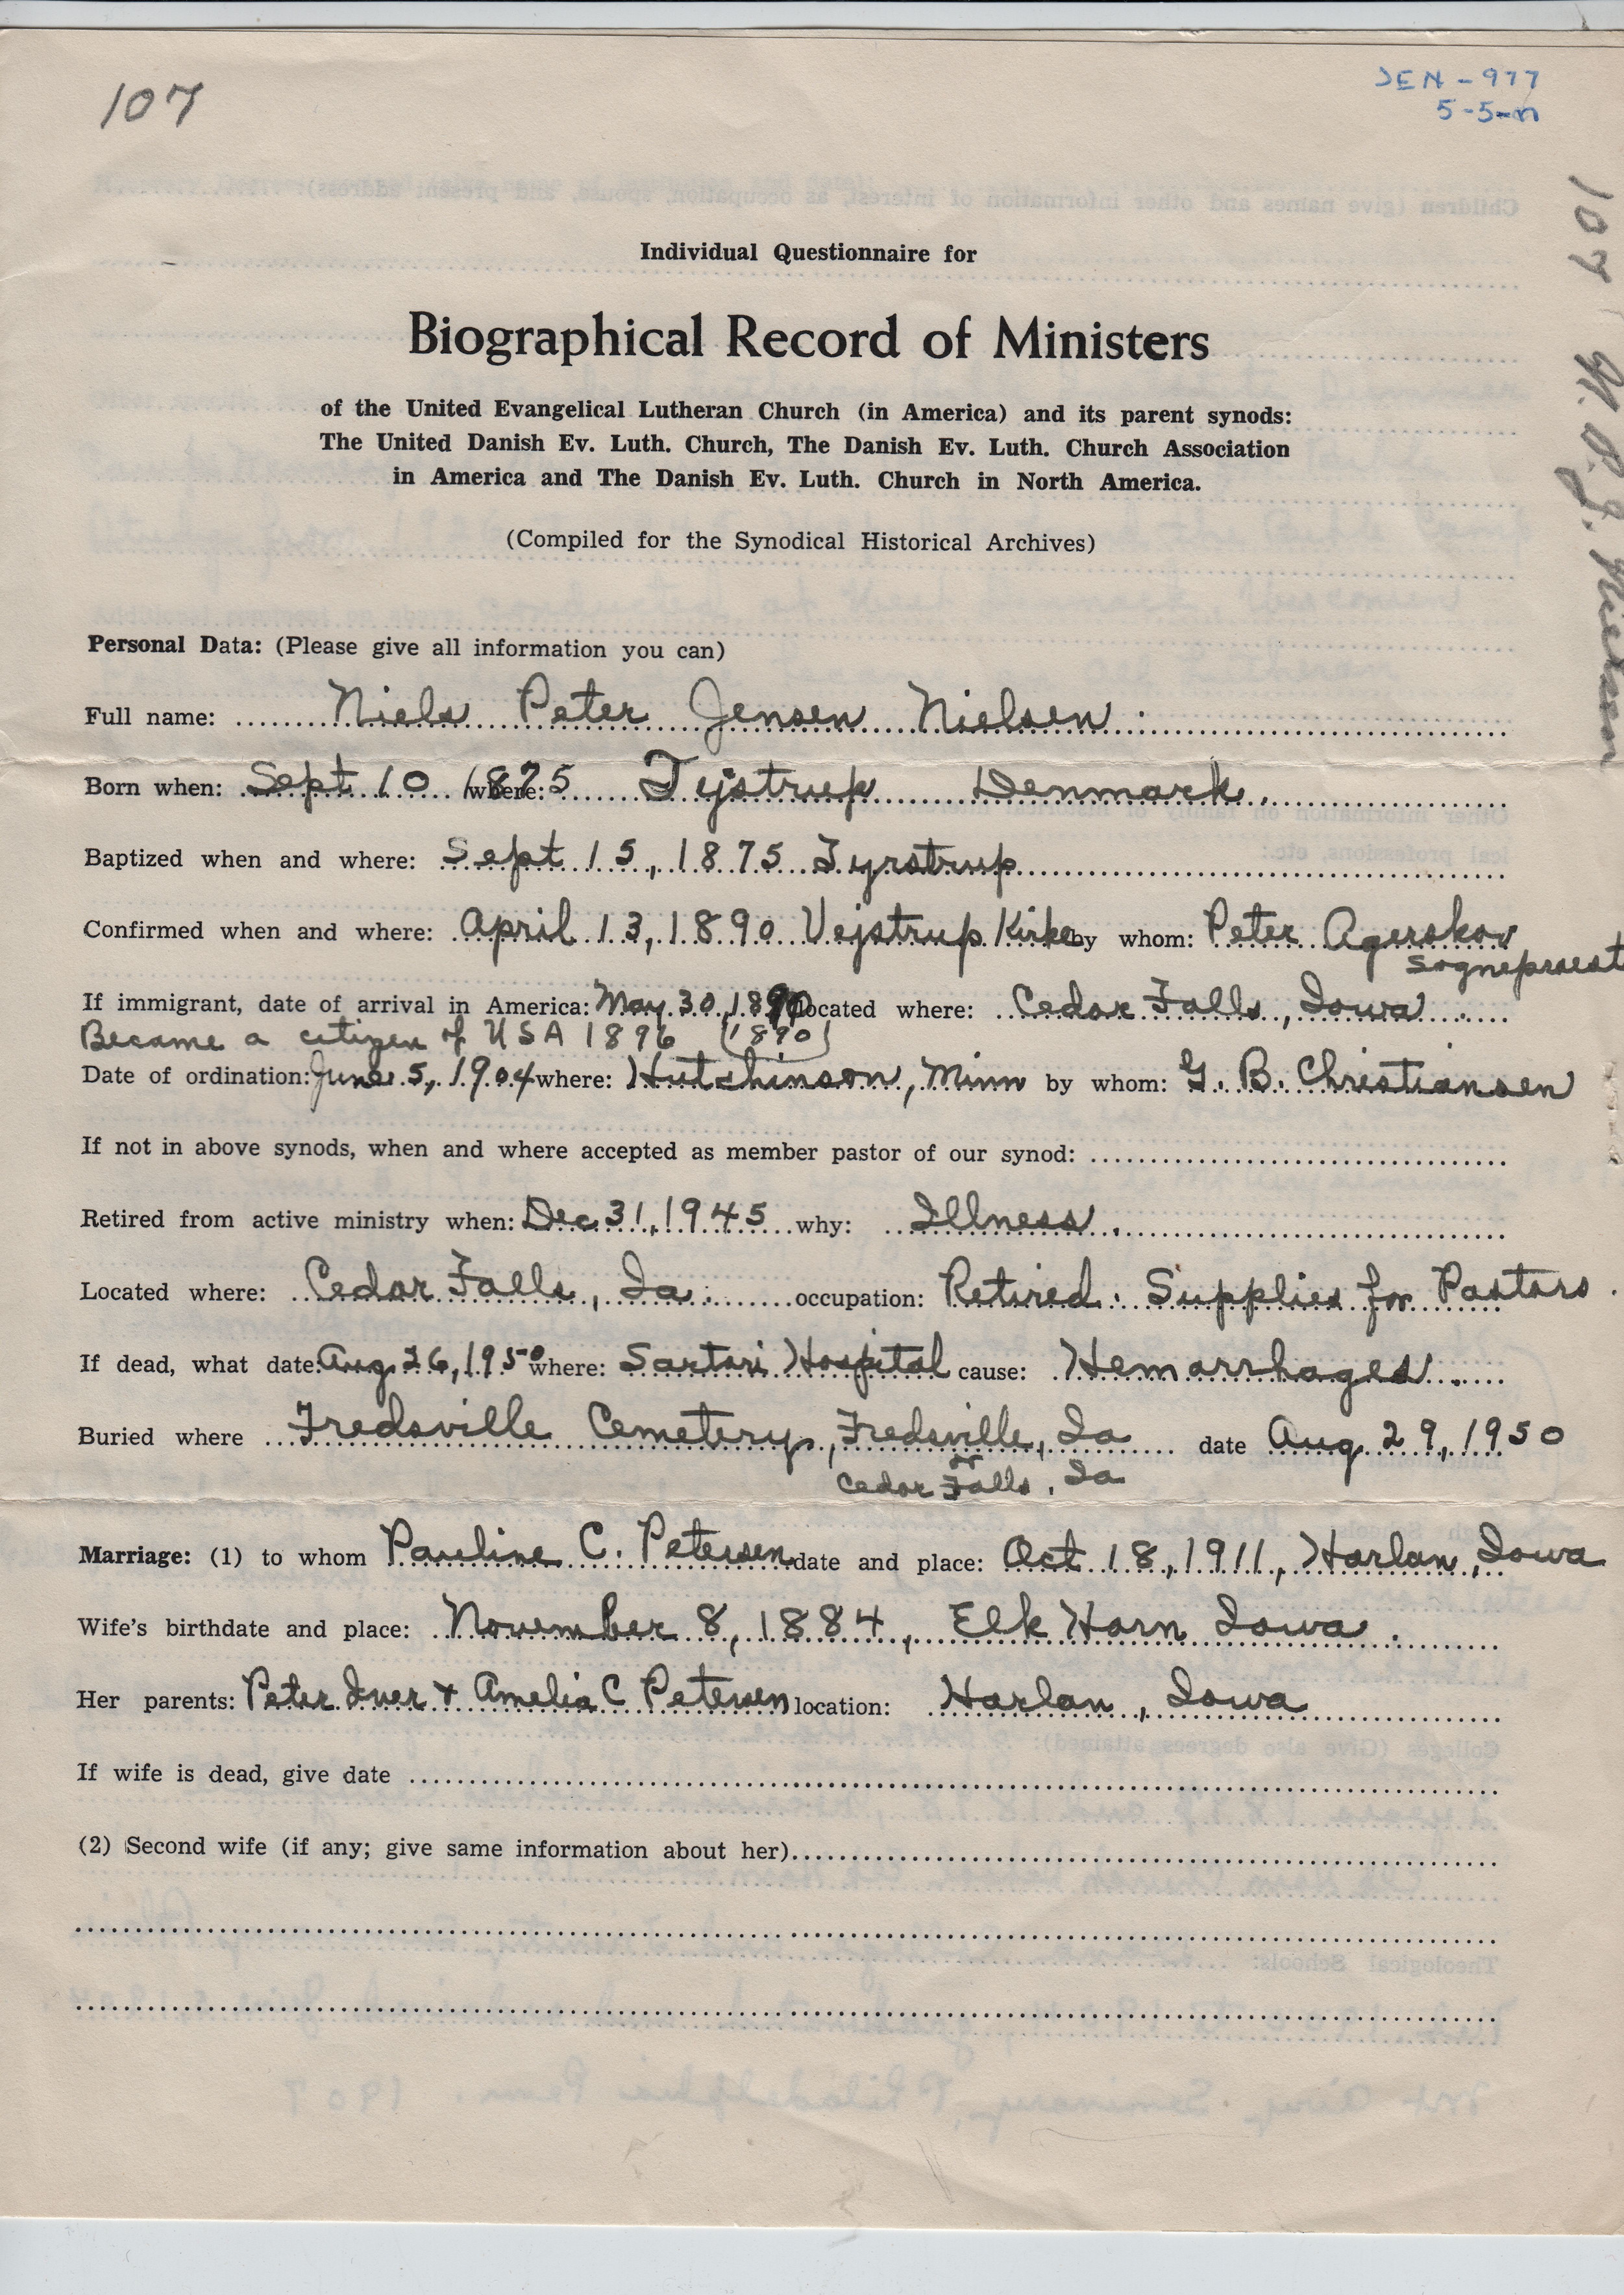 107
DEN-977
5-5-n
107 N. P. J. Nielsen
Individual Questionnaire for
Biographical Record of Ministers
of the United Evangelical Lutheran Church (in America) and its parent synods:
The United Danish Ev. Luth. Church, The Danish Ev. Luth. Church Association
in America and The Danish Ev. Luth. Church in North America.
(Compiled for the Synodical Historical Archives)
Personal Data: (Please give all information you can)
Full name: Niels Peter Jensen Nielsen
Born when: Sept 10 1875 where: Tejstrup Denmark
Baptized when and where: Sept 15, 1875 Tyrstrup
Confirmed when and where: April 13, 1890 Vejstrup Kirke by whom: Peter Agerskov
sognepraest
If immigrant, date of arrival in America: May 30, 1890 located where: Cedar Falls, Iowa
Became a citizen of USA 1896 (1890)
Date of ordination: June 5, 1904 where: Hutchinson, Minn by whom: G. B. Christiansen
If not in above synods, when and where accepted as member pastor of our synod:
Retired from active ministry when: Dec 31, 1945 why: Illness.
Located where: Cedar Falls, Ia. occupation: Retired. Supplies for Pastors.
If dead, what date: Aug 26, 1950 where: Sartori Hospital cause: Hemorrhages.
Buried where Fredsville Cemetery, Fredsville, Ia date Aug 29, 1950
or
Cedar Falls, Ia
Marriage: (1) to whom Pauline C. Petersen date and place: Oct 18, 1911, Harlan, Iowa
Wife's birthdate and place: November 8, 1884, Elk Horn Iowa.
Her parents: Peter Iver + Amelia C Petersen location: Harlan, Iowa
If wife is dead, give date
(2) Second wife (if any; give same information about her)